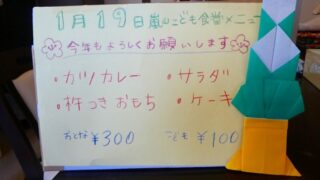 1月19日嵐山こども食堂メニュー
今年もよろしくお願いします
・カツカレー ・サラダ
・杵つきおもち ・ケーキ
おとな ¥300 こども ¥100